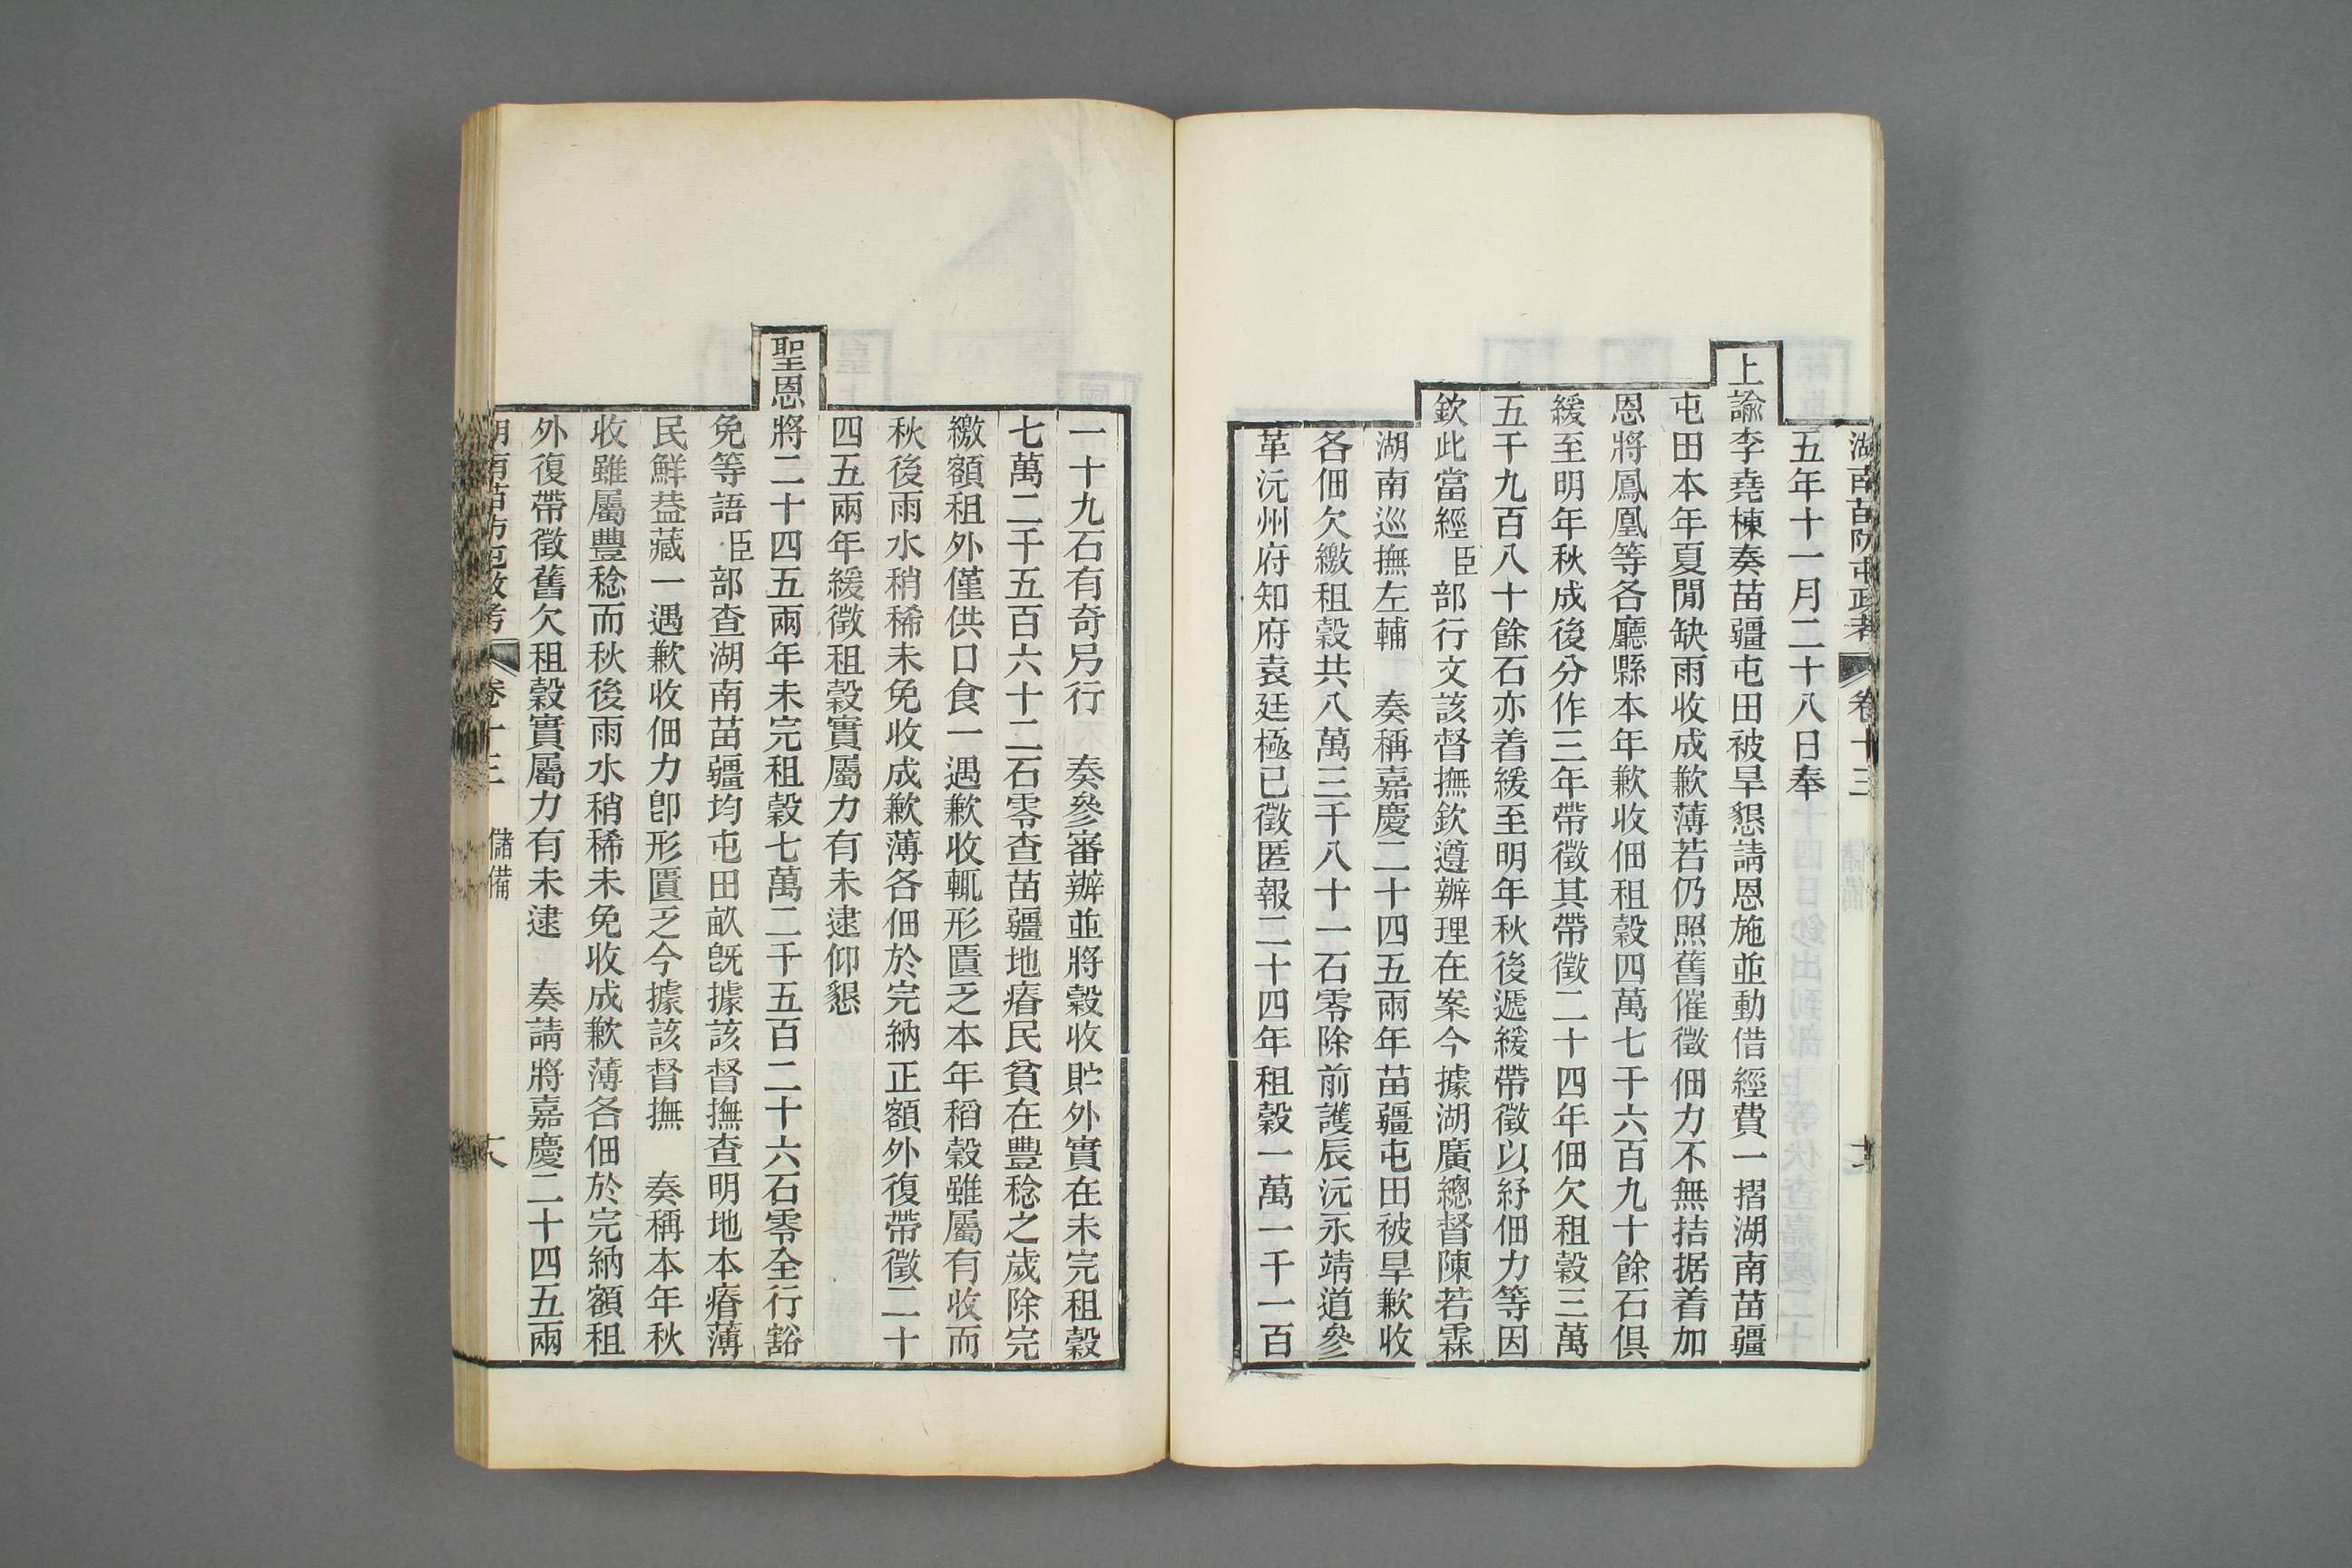 湖南苗防屯政考 卷十三
五年十一月二十八日奉
上諭李堯棟奏苗疆屯田被旱懇請恩施並動借經費一摺湖南苗疆
屯田本年夏閒缺雨收成歉薄若仍照舊催徵佃力不無拮据着加
恩將鳳凰等各廳縣本年歉收佃租穀四萬七千六百九十餘石俱
緩至明年秋成後分作三年帶徵其帶徵二十四年佃欠租穀三萬
五千九百八十餘石亦着緩至明年秋後遞緩帶徵以紓佃力等因
欽此當經臣部行文該督撫欽遵辦理在案今據湖廣總督陳若霖
湖南巡撫左輔 奏稱嘉慶二十四五兩年苗疆屯田被旱歉收
各佃欠繳租穀共八萬三千八十一石零除前護辰沅永靖道參
革沅州府知府袁廷極已徵匿報二十四年租穀一萬一千一百
一十九石有奇另行 奏參審辦並將穀收貯外實在未完租穀
七萬二千五百六十二石零查苗疆地瘠民貧在豐稔之歲除完
繳額租外僅供口食一遇歉收輒形匱乏本年稻穀雖屬有收而
秋後雨水稍稀未免收成歉薄各佃於完納正額外復帶徵二十
四五兩年緩徵租穀實屬力有未逮仰懇
聖恩將二十四五兩年未完租穀七萬二千五百二十六石零全行豁
免等語臣部查湖南苗疆均屯田畝旣據該督撫查明地本瘠薄
民鮮葢藏一遇歉收佃力卽形匱乏今據該督撫 奏稱本年秋
收雖屬豐稔而秋後雨水稍稀未免收成歉薄各佃於完納額租
外復帶徵舊欠租穀實屬力有未逮 奏請將嘉慶二十四五兩
湖南苗防屯政考 卷十三 儲備 十八